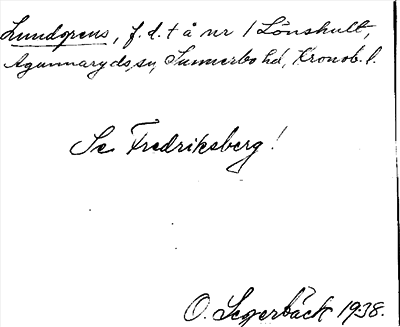 Lundgrens, f.d. t å nr 1 Lönshult,
Agunnaryds sn, Sunnerbo hd, Kronob. l.
Se Fredriksberg!
O. Segerbäck 1938.